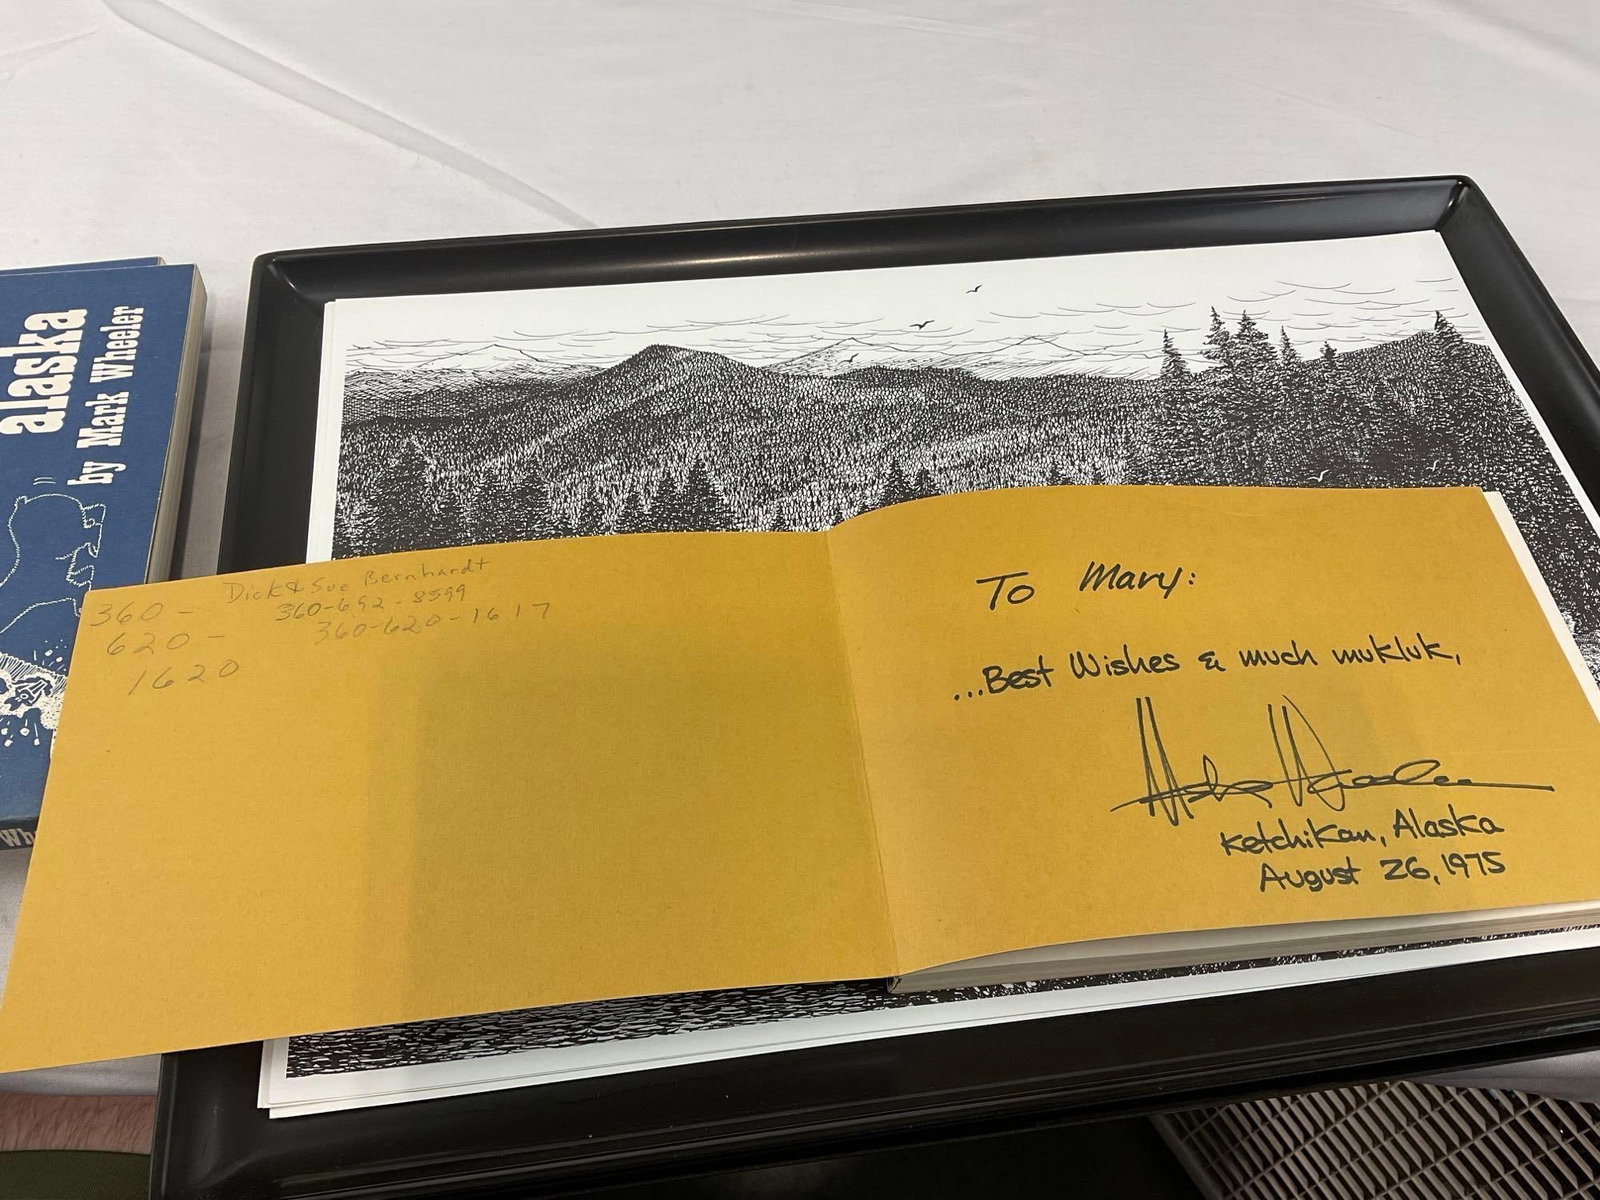 alaska
by Mark Wheeler
Dick & Sue Bernhardt
360-692-8599
360-620-1617
360-
620-
1620
To Mary:
...Best Wishes & much mukluk,
Mark Wheeler
Ketchikan, Alaska
August 26, 1975